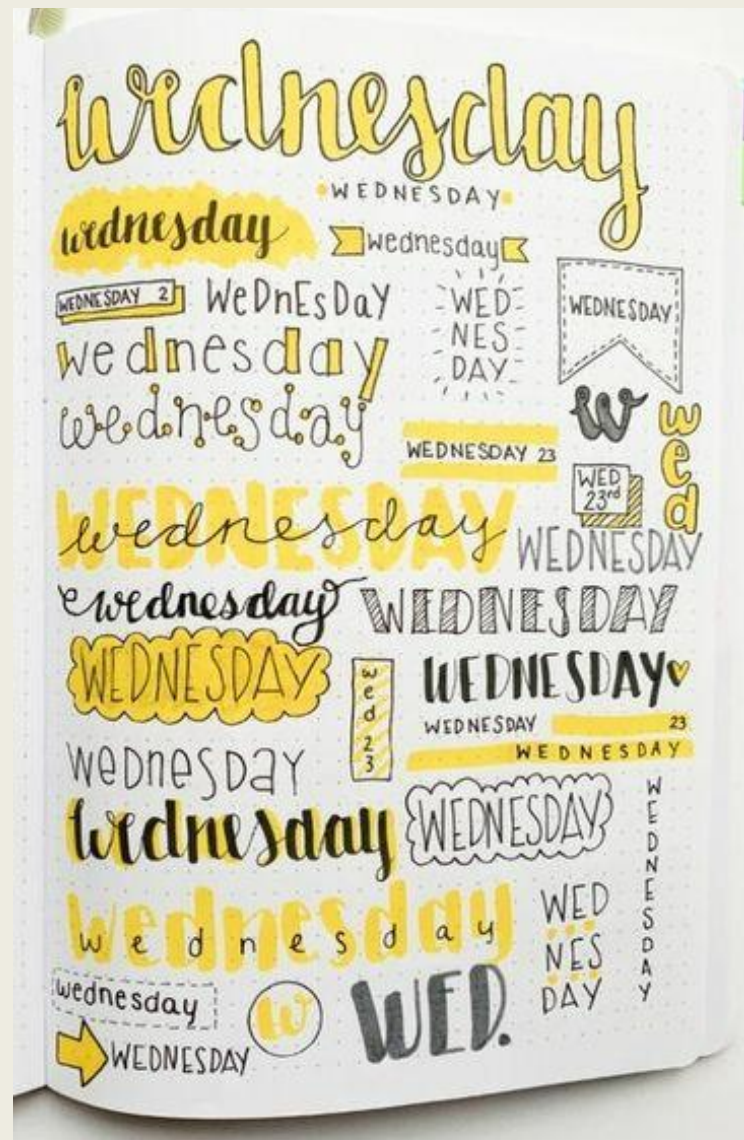 wednesday
WEDNESDAY
wednesday
wednesday
WEDNESDAY 2
WeDnEsDaY
WED
NES
DAY
WEDNESDAY
wednesday
wednesday
W
wed
WEDNESDAY 23
WED
23rd
WEDNESDAY
wednesday
WEDNESDAY
wednesday
WEDNESDAY
WEDNESDAY
wed 23
WEDNESDAY
WEDNESDAY 23
WEDNESDAY
wednesday
wednesday
WEDNESDAY
WEDNESDAY
wednesday
wednesday
WED
NES
DAY
wednesday
W
WED.
WEDNESDAY